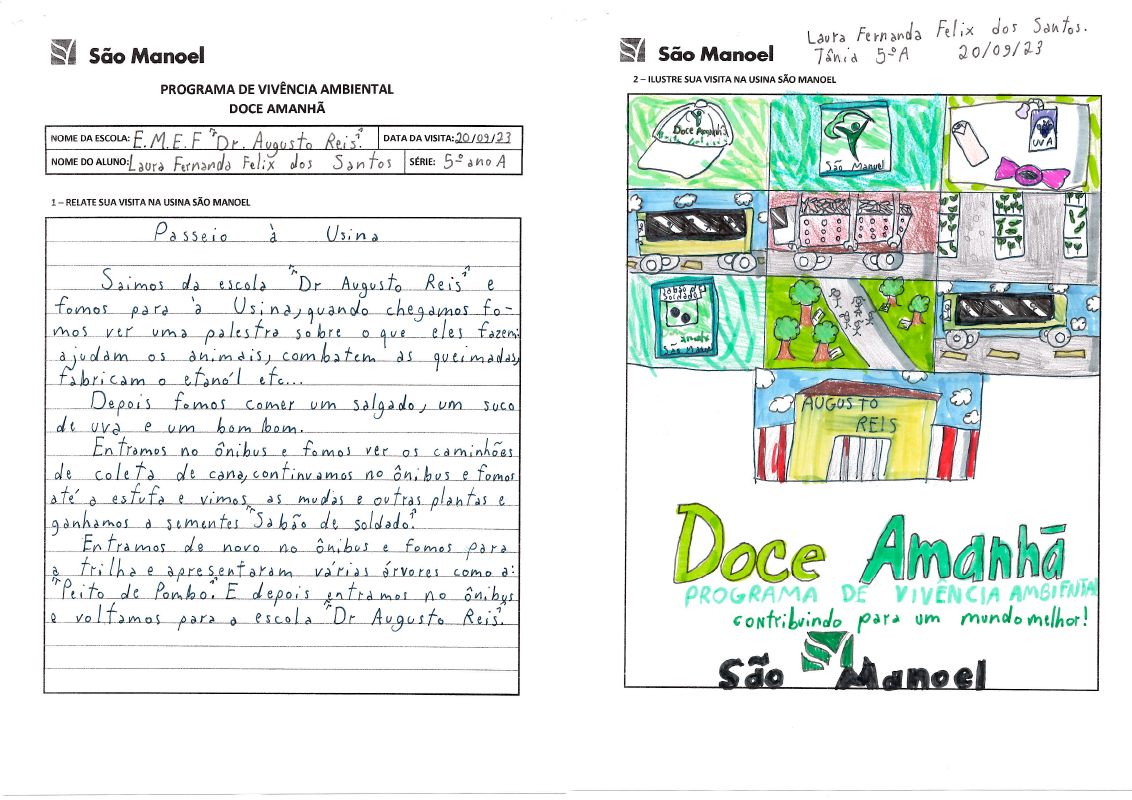 São Manoel
PROGRAMA DE VIVÊNCIA AMBIENTAL
DOCE AMANHÃ
NOME DA ESCOLA: E.M.E.F "Dr. Augusto Reis". DATA DA VISITA: 20/09/23
NOME DO ALUNO: Laura Fernanda Felix dos Santos SÉRIE: 5º ano A
1 – RELATE SUA VISITA NA USINA SÃO MANOEL
Passeio à Usina
Saimos da escola "Dr Augusto Reis" e
fomos para à Usina, quando chegamos fo-
mos ver uma palestra sobre o que eles fazem:
ajudam os animais, combatem as queimadas,
fabricam o etanól etc...
Depois fomos comer um salgado, um suco
de uva e um bom bom.
Entramos no ônibus e fomos ver os caminhões
de coleta de cana, continuamos no ônibus e fomos
até a estufa e vimos as mudas e outras plantas e
ganhamos a sementes "Sabão de soldado."
Entramos de novo no ônibus e fomos para
a trilha e apresentaram várias árvores como a:
"Peito de Pombo". E depois entramos no ônibus
e voltamos para a escola "Dr Augusto Reis".
São Manoel
Laura Fernanda Felix dos Santos.
Tânia 5ºA 20/09/23
2 – ILUSTRE SUA VISITA NA USINA SÃO MANOEL
Doce Amanhã
São Manuel
UVA
Sabão de
Soldado
São Manuel
AUGUSTO
REIS
Doce Amanhã
PROGRAMA DE VIVÊNCIA AMBIENTAL
contribuindo para um mundo melhor!
São Manoel